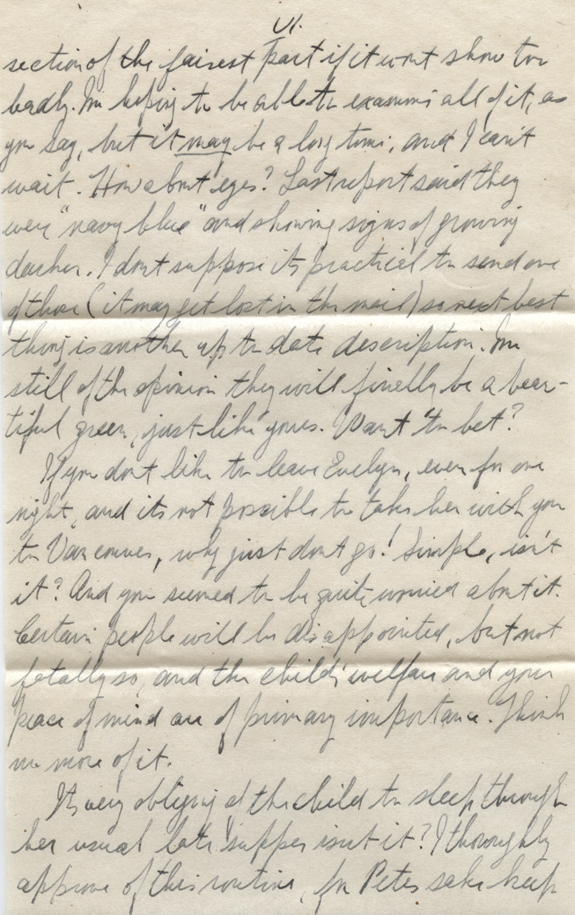 VI.
section of the fairest part if it wont show too
badly. Im hoping to be able to examine all of it, as
you say, but it may be a long time, and I can't
wait. How about eyes? Last report said they
were "navy blue" and showing signs of growing
darker. I dont suppose its practical to send one
of those (it may get lost in the mail) so next best
thing is another up to date description. Im
still of the opinion they will finally be a beau-
tiful green, just like yours. Want to bet?
If you dont like to leave Evelyn, even for one
night, and its not possible to take her with you
to Vancouver, why just dont go! Simple, isn't
it? And you seemed to be quite worried about it.
Certain people will be disappointed, but not
fatally so, and the child's welfare and your
peace of mind are of primary importance. Think
no more of it.
Its very obliging of the child to sleep through
her usual late supper isnt it? I thoroughly
approve of this routine, for Petes sake keep